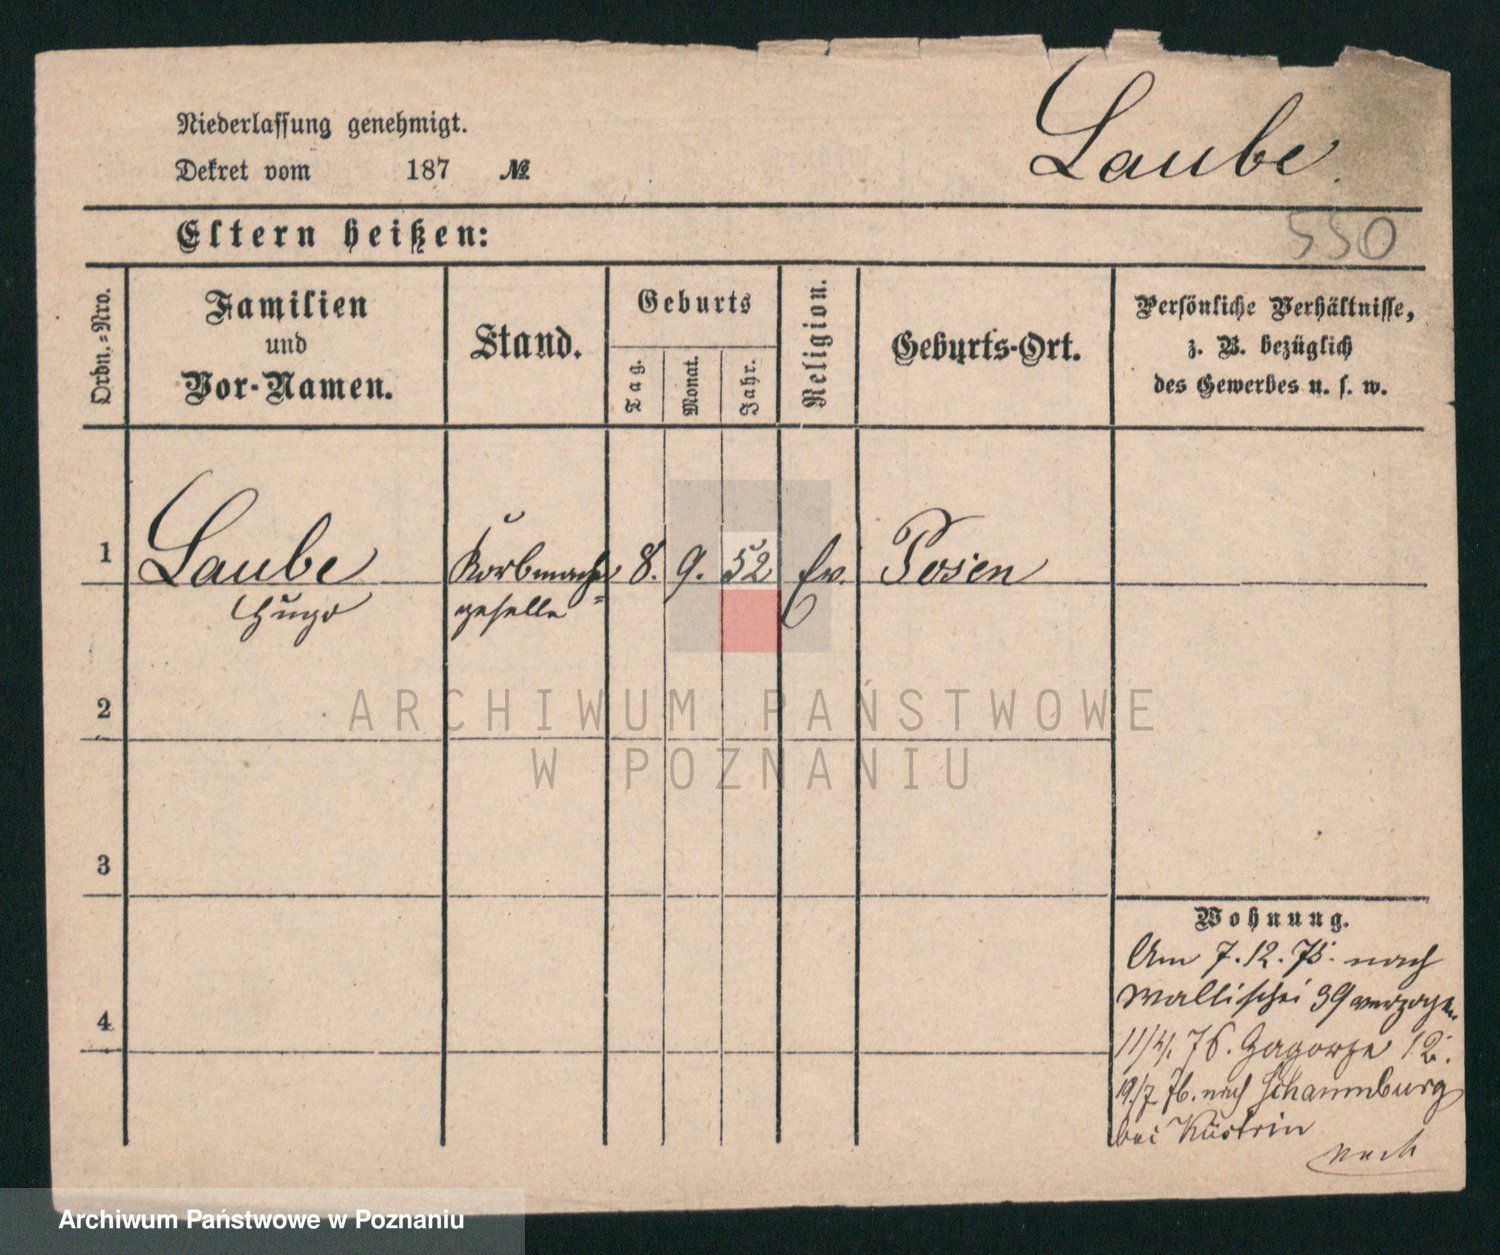 Niederlassung genehmigt.
Dekret vom 187 №
Laube
550
Eltern heißen:
Ordn.-Nro.
Familien
und
Vor-Namen.
Stand.
Geburts
Tag.
Monat.
Jahr.
Religion.
Geburts-Ort.
Persönliche Verhältnisse,
z. B. bezüglich
des Gewerbes u. s. w.
1 Laube Korbmacher 8. 9. 52 Ev. Posen
Hugo geselle
2
ARCHIWUM PAŃSTWOWE
W POZNANIU
3
Wohnung.
Am 7.12.75. nach
Wallischei 39 verzogen
11/4. 76. Zagorze 12.
19/7 76. nach Schaumburg
bei Küstrin
4
Archiwum Państwowe w Poznaniu